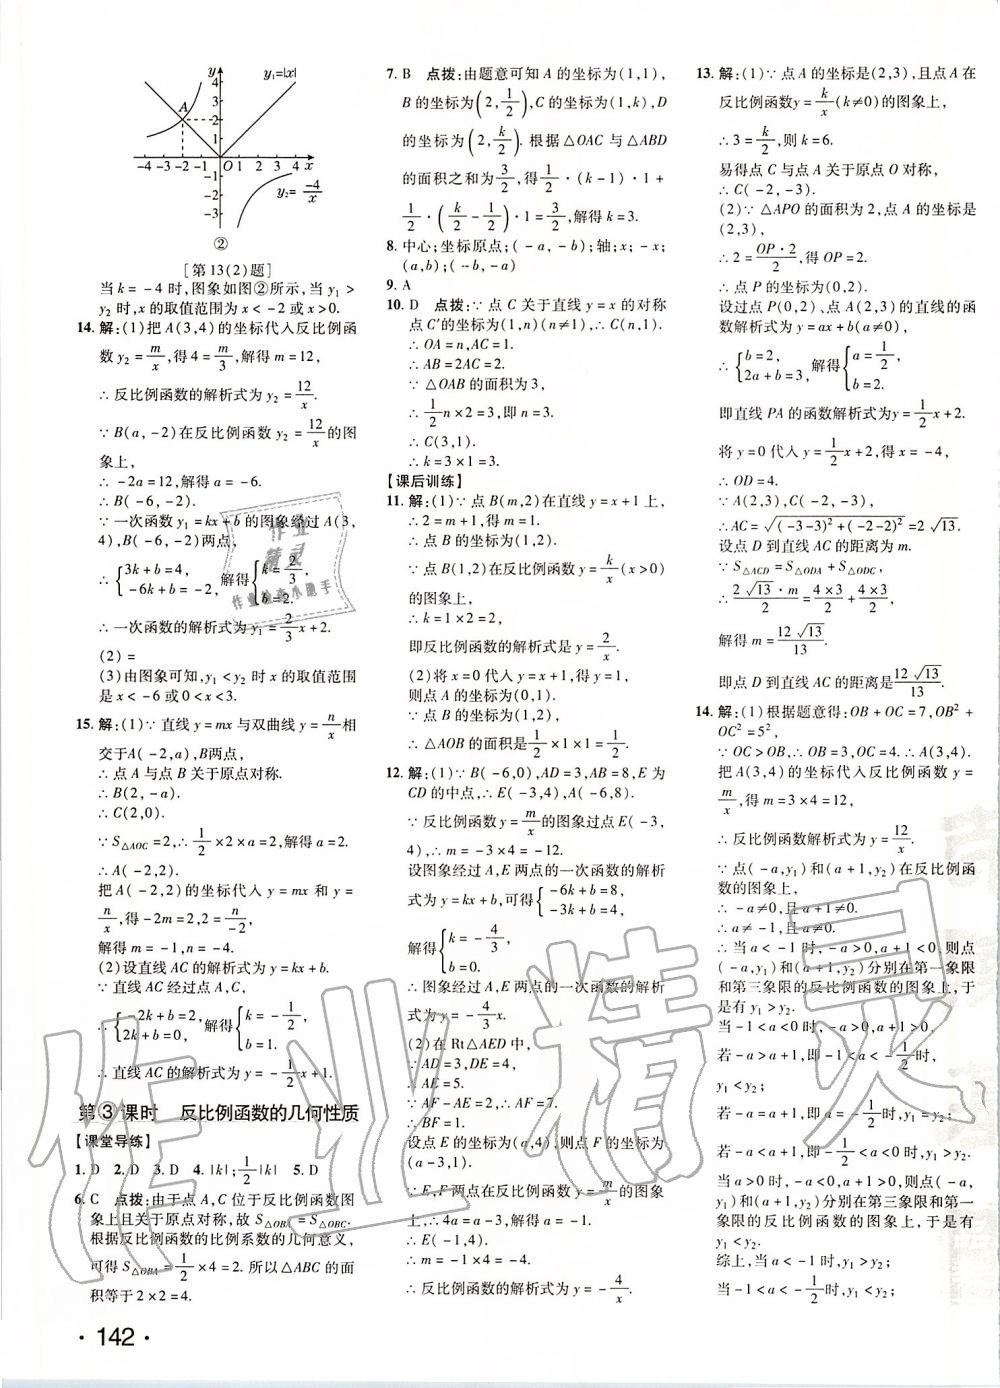 y
y₁=|x|
A
4
3
2
1
-4 -3 -2 -1 O 1 2 3 4 x
-1
-2
-3
y₂=-4/x
②
[第13(2)题]
当k=-4时,图象如图②所示,当y₁>
y₂时,x的取值范围为x<-2或x>0.
14. 解:(1)把A(3,4)的坐标代入反比例函
数y₂=m/x,得4=m/3,解得m=12,
∴反比例函数的解析式为y₂=12/x.
∵B(a,-2)在反比例函数y₂=12/x的图
象上,
∴-2a=12,解得a=-6.
∴B(-6,-2).
∵一次函数y₁=kx+b的图象经过A(3,
4),B(-6,-2)两点,
∴{3k+b=4, -6k+b=-2, 解得{k=2/3, b=2.
∴一次函数的解析式为y₁=2/3x+2.
(2)=
(3)由图象可知,y₁<y₂时x的取值范围
是x<-6或0<x<3.
15. 解:(1)∵直线y=mx与双曲线y=n/x相
交于A(-2,a),B两点,
∴点A与点B关于原点对称.
∴B(2,-a).
∴C(2,0).
∵S△AOC=2,∴1/2×2×a=2.
∴A(-2,2).
把A(-2,2)的坐标代入y=mx和y=
n/x,得-2m=2,2=n/-2,
解得m=-1,n=-4.
(2)设直线AC的解析式为y=kx+b.
∵直线AC经过点A,C,
∴{-2k+b=2, 2k+b=0, 解得{k=-1/2, b=1.
∴直线AC的解析式为y=-1/2x+1.
第③课时 反比例函数的几何性质
【课堂导练】
1. D 2. D 3. D 4. |k|;1/2|k| 5. D
6. C 点拨:由于点A,C位于反比例函数图
象上且关于原点对称,故S△OBA=S△OBC.
根据反比例函数的比例系数的几何意义,
可得S△OBA=1/2×4=2.所以△ABC的面
积等于2×2=4.
·142·
7. B 点拨:由题意可知A的坐标为(1,1),
B的坐标为(2,1/2),C的坐标为(1,k),D
的坐标为(2,k/2).根据△OAC与△ABD
的面积之和为3/2,可得1/2·(k-1)·1+
1/2·(k/2-1/2)·1=3/2,解得k=3.
8. 中心;坐标原点;(-a,-b);轴;x;-x;
(a,b);(-b,-a)
9. A
10. D 点拨:∵点C关于直线y=x的对称
点C′的坐标为(1,n)(n≠1),∴C(n,1).
∴OA=n,AC=1.
∴AB=2AC=2.
∵△OAB的面积为3,
∴1/2n×2=3,即n=3.
∴C(3,1).
∴k=3×1=3.
【课后训练】
11. 解:(1)∵点B(m,2)在直线y=x+1上,
∴2=m+1,得m=1.
∴点B的坐标为(1,2).
∵点B(1,2)在反比例函数y=k/x(x>0)
的图象上,
∴k=1×2=2,
即反比例函数的解析式是y=2/x.
(2)将x=0代入y=x+1,得y=1,
则点A的坐标为(0,1).
∵点B的坐标为(1,2),
∴△AOB的面积是1/2×1×1=1/2.
12. 解:(1)∵B(-6,0),AD=3,AB=8,E为
CD的中点,∴E(-3,4),A(-6,8).
∵反比例函数y=m/x的图象过点E(-3,
4),∴m=-3×4=-12.
设图象经过A,E两点的一次函数的解析
式为y=kx+b,∴{-6k+b=8, -3k+b=4,
解得{k=-4/3, b=0.
∴图象经过A,E两点的一次函数的解析
式为y=-4/3x.
(2)在Rt△AED中,
∵AD=3,DE=4,
∴AE=5.
∵AF-AE=2,∴AF=7.
∴BF=1.
设点E的坐标为(a,4),则点F的坐标为
(a-3,1).
∵E,F两点在反比例函数y=m/x的图象
上,∴4a=a-3,解得a=-1.
∴E(-1,4).
∴m=-1×4=-4.
∴反比例函数的解析式为y=-4/x.
13. 解:(1)∵点A的坐标是(2,3),且点A在
反比例函数y=k/x(k≠0)的图象上,
∴3=k/2,则k=6.
易得点C与点A关于原点O对称,
∴C(-2,-3).
(2)∵△APO的面积为2,点A的坐标是
(2,3),
∴2=OP·2/2,得OP=2.
∴点P的坐标为(0,2).
设过点P(0,2)、点A(2,3)的直线的函
数解析式为y=ax+b(a≠0),
∴{b=2, 2a+b=3, 解得{a=1/2, b=2.
即直线PA的函数解析式为y=1/2x+2.
将y=0代入y=1/2x+2,得x=-4.
∴OD=4.
∵A(2,3),C(-2,-3),
∴AC=√(-3-3)²+(-2-2)²=2√13.
设点D到直线AC的距离为m.
∵S△ACD=S△ODA+S△ODC,
∴2√13·m/2=4×3/2+4×3/2,
解得m=12√13/13.
即点D到直线AC的距离是12√13/13.
14. 解:(1)根据题意得:OB+OC=7,OB²+
OC²=5²,
∵OC>OB,∴OB=3,OC=4.∴A(3,4).
把A(3,4)的坐标代入反比例函数y=
m/x,得m=3×4=12,
∴反比例函数解析式为y=12/x.
∵点(-a,y₁)和(a+1,y₂)在反比例函
数的图象上,
∴-a≠0,且a+1≠0.
∴a≠-1,且a≠0.
∴当a<-1时,-a>0,a+1<0,则点
(-a,y₁)和(a+1,y₂)分别在第一象限
和第三象限的反比例函数的图象上,于
是有y₁>y₂.
当-1<a<0时,-a>0,a+1>0,
若-a>a+1,即-1<a<-1/2时,
y₁<y₂,
若-a=a+1,即a=-1/2时,y₁=y₂,
若-a<a+1,即-1/2<a<0时,y₁>y₂.
当a>0时,-a<0,a+1>0,则点(-a,
y₁)和(a+1,y₂)分别在第三象限和第一
象限的反比例函数的图象上,于是有
y₁<y₂.
综上,当a<-1时,y₁>y₂;
当-1<a<-1/2时,y₁<y₂;
作业精灵
作业检查小助手
作业精灵